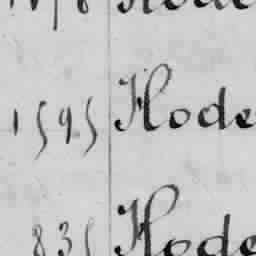 1595 Hode
835 Hode